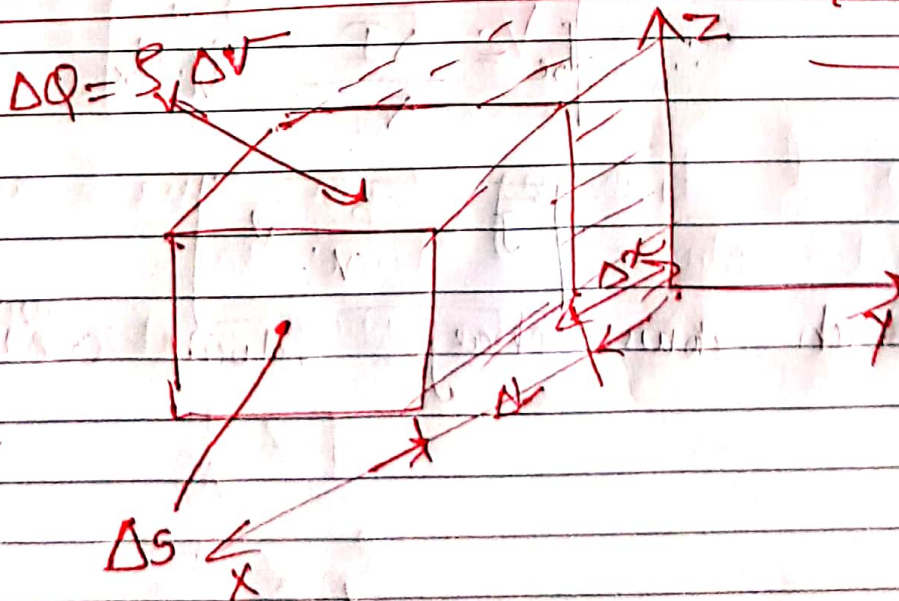 ΔQ = ρᵥ Δv
Z
Δx
Y
ΔL
ΔS
X